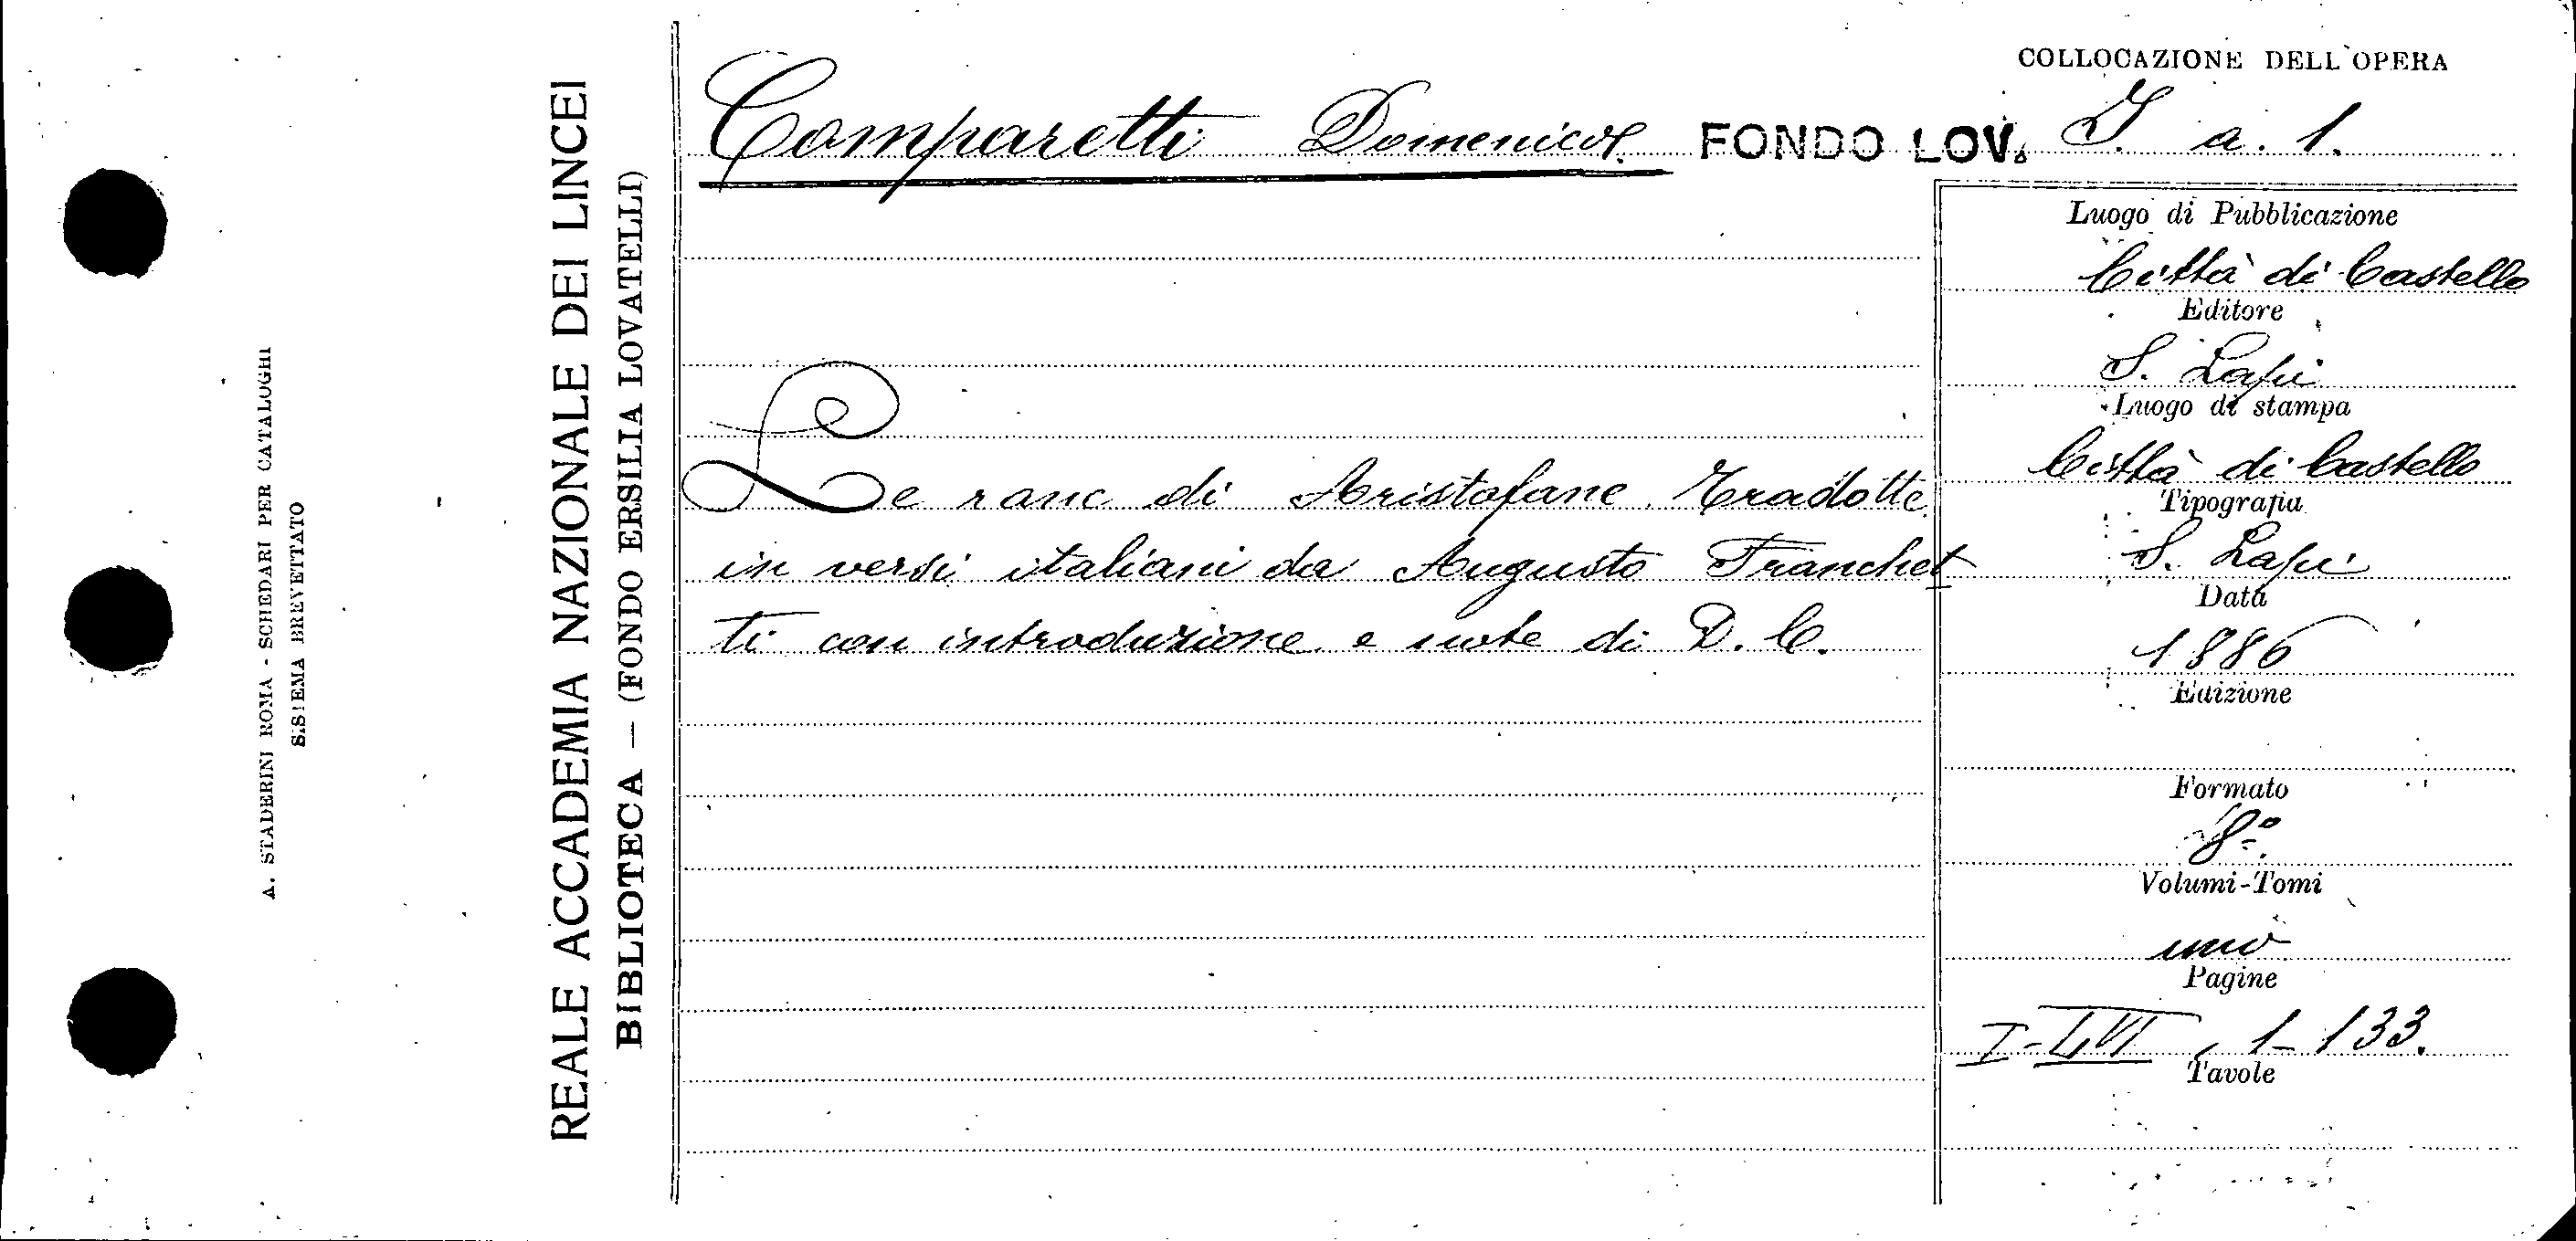 COLLOCAZIONE DELL'OPERA
Comparetti Domenico. FONDO LOV. I. a. 1.
Le rane di Aristofane. Tradotte
in versi italiani da Augusto Franchet
ti con introduzione e note di D. C.
Luogo di Pubblicazione
Città di Castello
Editore
S. Lapi
Luogo di stampa
Città di Castello
Tipografia
S. Lapi
Data
1886
Edizione
Formato
8°.
Volumi-Tomi
uno
Pagine
I-LVI, 1-133.
Tavole
REALE ACCADEMIA NAZIONALE DEI LINCEI
BIBLIOTECA — (FONDO ERSILIA LOVATELLI)
A. STADERINI ROMA - SCHEDARI PER CATALOGHI
SISTEMA BREVETTATO